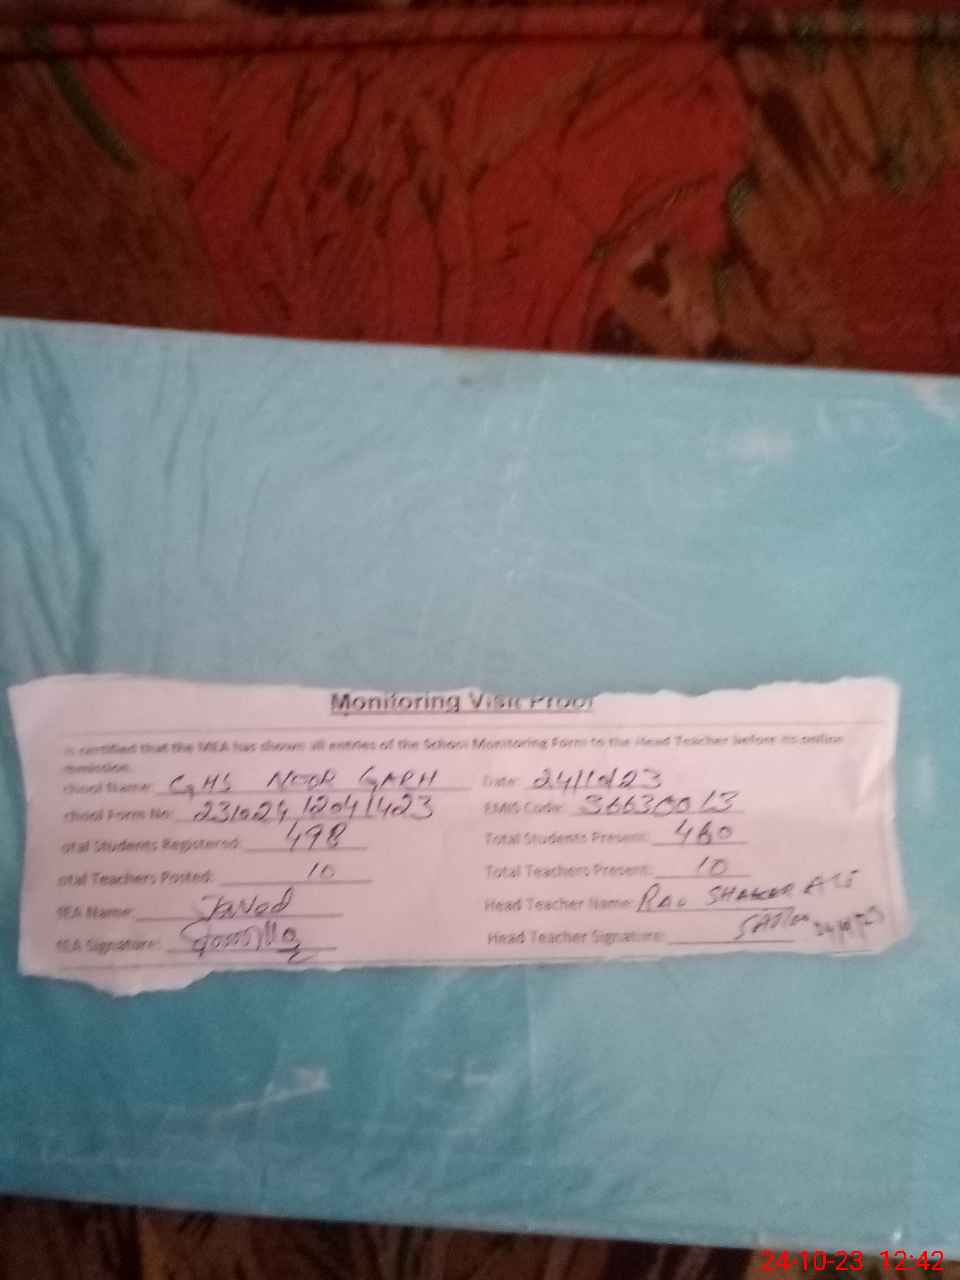 Monitoring Visit Proof
is certified that the MEA has shown all entries of the School Monitoring Form to the Head Teacher before its online
mission.
chool Name: GHS NOOR GARH Date: 24/10/23
chool Form No: 231024120411423 EMIS Code: 36630013
otal Students Registered: 498 Total Students Present: 460
otal Teachers Posted: 10 Total Teachers Present: 10
MEA Name: Javed Head Teacher Name: RAO SHAKER ALI
MEA Signature: Head Teacher Signature: 24/10/23
24-10-23 12:42